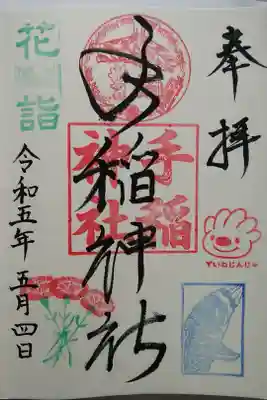 奉拝
手稲神社
手稲
神社
ていねじんじゃ
花
詣
令和五年 五月 四日